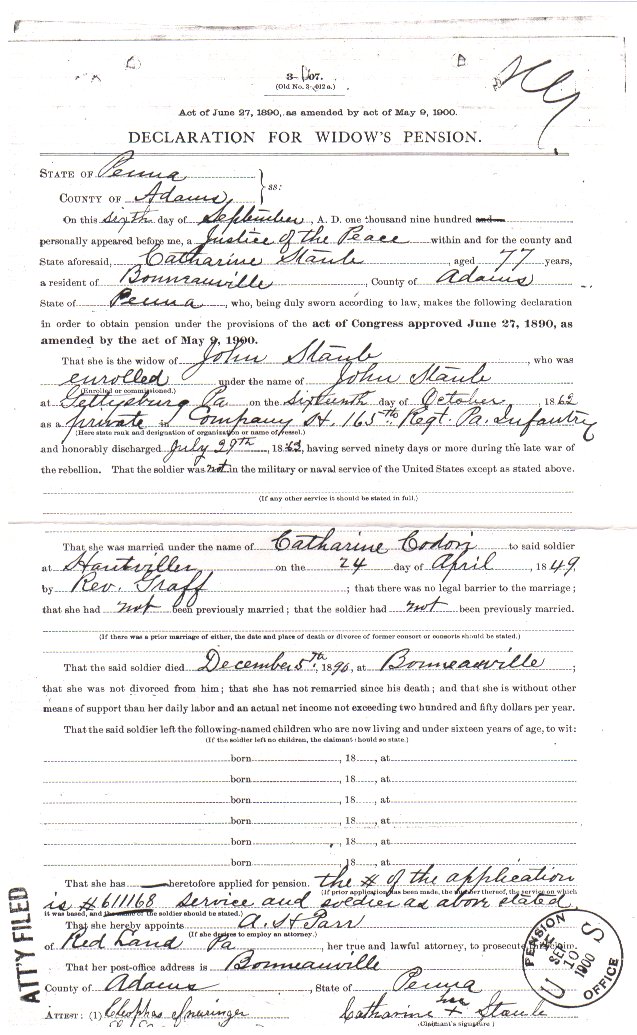 3-107.
(Old No. 3-012 a.)
Act of June 27, 1890, as amended by act of May 9, 1900.
DECLARATION FOR WIDOW'S PENSION.
STATE OF Penna
COUNTY OF Adams, } ss:
On this sixth day of September, A. D. one thousand nine hundred and
personally appeared before me, a Justice of the Peace within and for the county and
State aforesaid, Catharine Staub, aged 77 years,
a resident of Bonneauville, County of Adams
State of Penna, who, being duly sworn according to law, makes the following declaration
in order to obtain pension under the provisions of the act of Congress approved June 27, 1890, as
amended by the act of May 9, 1900.
That she is the widow of John Staub, who was
enrolled under the name of John Staub
(Enrolled or commissioned.)
at Gettysburg Pa on the sixteenth day of October, 1862
as a private in Company H. 165th Regt. Pa. Infantry
(Here state rank and designation of organization or name of vessel.)
and honorably discharged July 29th, 1863, having served ninety days or more during the late war of
the rebellion. That the soldier was not in the military or naval service of the United States except as stated above.
(If any other service it should be stated in full.)
That she was married under the name of Catharine Codori to said soldier
at on the 24 day of April, 1849
by Rev. Graff; that there was no legal barrier to the marriage;
that she had not been previously married; that the soldier had not been previously married.
(If there was a prior marriage of either, the date and place of death or divorce of former consort or consorts should be stated.)
That the said soldier died December 5th, 1890, at Bonneauville;
that she was not divorced from him; that she has not remarried since his death; and that she is without other
means of support than her daily labor and an actual net income not exceeding two hundred and fifty dollars per year.
That the said soldier left the following-named children who are now living and under sixteen years of age, to wit:
(If the soldier left no children, the claimant should so state.)
born, 18, at
born, 18, at
born, 18, at
born, 18, at
born, 18, at
born, 18, at
That she has heretofore applied for pension. the # of the application
(If prior application has been made, the number thereof, the service on which
is #611168 service and soldier as above stated
it was based, and the name of the soldier should be stated.)
That she hereby appoints A. H Parr
(If she desires to employ an attorney.)
of Red Land Pa, her true and lawful attorney, to prosecute claim.
That her post-office address is Bonneauville
County of Adams, State of Penna
ATTEST: (1) Cleophas Catharine her + Staub
(Claimant's signature)
ATT'Y FILED
U S PENSION OFFICE
SEP 10 1900